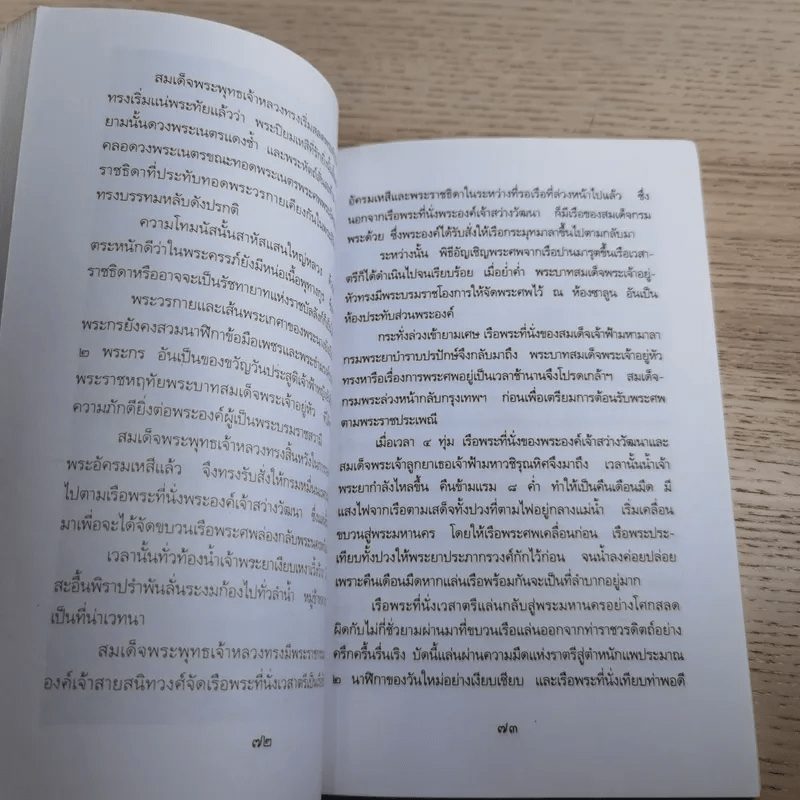 สมเด็จพระพุทธเจ้าหลวงทรงเริ่มสลด
ทรงเริ่มแน่พระทัยแล้วว่า พระปิยมเหสีที่รักยิ่งนั้น
ยามนั้นดวงพระเนตรแดงช้ำ และพระหัตถ์
คลอดวงพระเนตรขณะทอดพระเนตรพระศพพระ
ราชธิดาที่ประทับทอดพระวรกายเคียงกัน
ทรงบรรทมหลับดังปรกติ
ความโทมนัสนั้นสาหัสแสนใหญ่หลวง
ตระหนักดีว่าในพระครรภ์ยังมีหน่อเนื้อพุทธางกูร
ราชธิดาหรืออาจจะเป็นรัชทายาทแห่งราชบัลลังก์
พระวรกายและเส้นพระเกศาของพระนาง
พระกรยังคงสวมนาฬิกาข้อมือเพชรและพระธำมรงค์
๒ พระกร อันเป็นของขวัญวันประสูติเจ้าฟ้าหญิง
พระราชหฤทัยพระบาทสมเด็จพระเจ้าอยู่หัว
ความภักดียิ่งต่อพระองค์ผู้เป็นพระบรมราชสวามี
สมเด็จพระพุทธเจ้าหลวงทรงสิ้นหวังในการ
พระอัครมเหสีแล้ว จึงทรงรับสั่งให้กรมหมื่น
ไปตามเรือพระที่นั่งพระองค์เจ้าสว่างวัฒนา ซึ่ง
มาเพื่อจะได้จัดขบวนเรือพระศพล่องกลับพระนคร
เวลานั้นทั่วท้องน้ำเจ้าพระยาเงียบเหงาวังเวง
สะอื้นพิราปรำพันลั่นระงมก้องไปทั่วลำน้ำ หมู่
เป็นที่น่าเวทนา
สมเด็จพระพุทธเจ้าหลวงทรงมีพระราช
องค์เจ้าสายสนิทวงศ์จัดเรือพระที่นั่งเวสาตรีเป็น
๗๒
อัครมเหสีและพระราชธิดาในระหว่างที่รอเรือที่ล่วงหน้าไปแล้ว ซึ่ง
นอกจากเรือพระที่นั่งพระองค์เจ้าสว่างวัฒนา ก็มีเรือของสมเด็จกรม
พระด้วย ซึ่งพระองค์ได้รับสั่งให้เรือกระมุทมาลาขึ้นไปตามกลับมา
ระหว่างนั้น พิธีอัญเชิญพระศพจากเรือปานมารุตขึ้นเรือเวสา-
ตรีก็ได้ดำเนินไปจนเรียบร้อย เมื่อย่ำค่ำ พระบาทสมเด็จพระเจ้าอยู่-
หัวทรงมีพระบรมราชโองการให้จัดพระศพไว้ ณ ห้องซาลูน อันเป็น
ห้องประทับส่วนพระองค์
กระทั่งล่วงเข้ายามเศษ เรือพระที่นั่งของสมเด็จเจ้าฟ้ามหามาลา
กรมพระยาบำราบปรปักษ์จึงกลับมาถึง พระบาทสมเด็จพระเจ้าอยู่หัว
ทรงหารือเรื่องการพระศพอยู่เป็นเวลาช้านานจึงโปรดเกล้าฯ สมเด็จ-
กรมพระล่วงหน้ากลับกรุงเทพฯ ก่อนเพื่อเตรียมการต้อนรับพระศพ
ตามพระราชประเพณี
เมื่อเวลา ๔ ทุ่ม เรือพระที่นั่งของพระองค์เจ้าสว่างวัฒนาและ
สมเด็จพระเจ้าลูกยาเธอเจ้าฟ้ามหาวชิรุณหิศจึงมาถึง เวลานั้นน้ำเจ้า
พระยากำลังไหลขึ้น คืนข้ามแรม ๘ ค่ำ ทำให้เป็นคืนเดือนมืด มี
แสงไฟจากเรือตามเสด็จทั้งปวงที่ตามไฟอยู่กลางแม่น้ำ เริ่มเคลื่อน
ขบวนสู่พระมหานคร โดยให้เรือพระศพเคลื่อนก่อน เรือพระประ-
เทียบทั้งปวงให้พระยาประภากรวงศ์กักไว้ก่อน จนน้ำลงค่อยปล่อย
เพราะคืนเดือนมืดหากแล่นเรือพร้อมกันจะเป็นที่ลำบากอยู่มาก
เรือพระที่นั่งเวสาตรีแล่นกลับสู่พระมหานครอย่างโศกสลด
ผิดกับไม่กี่ชั่วยามผ่านมาที่ขบวนเรือแล่นออกจากท่าราชวรดิตถ์อย่าง
ครึกครื้นรื่นเริง บัดนี้แล่นผ่านความมืดแห่งราตรีสู่ตำหนักแพประมาณ
๒ นาฬิกาของวันใหม่อย่างเงียบเชียบ และเรือพระที่นั่งเทียบท่าพอดี
๗๓